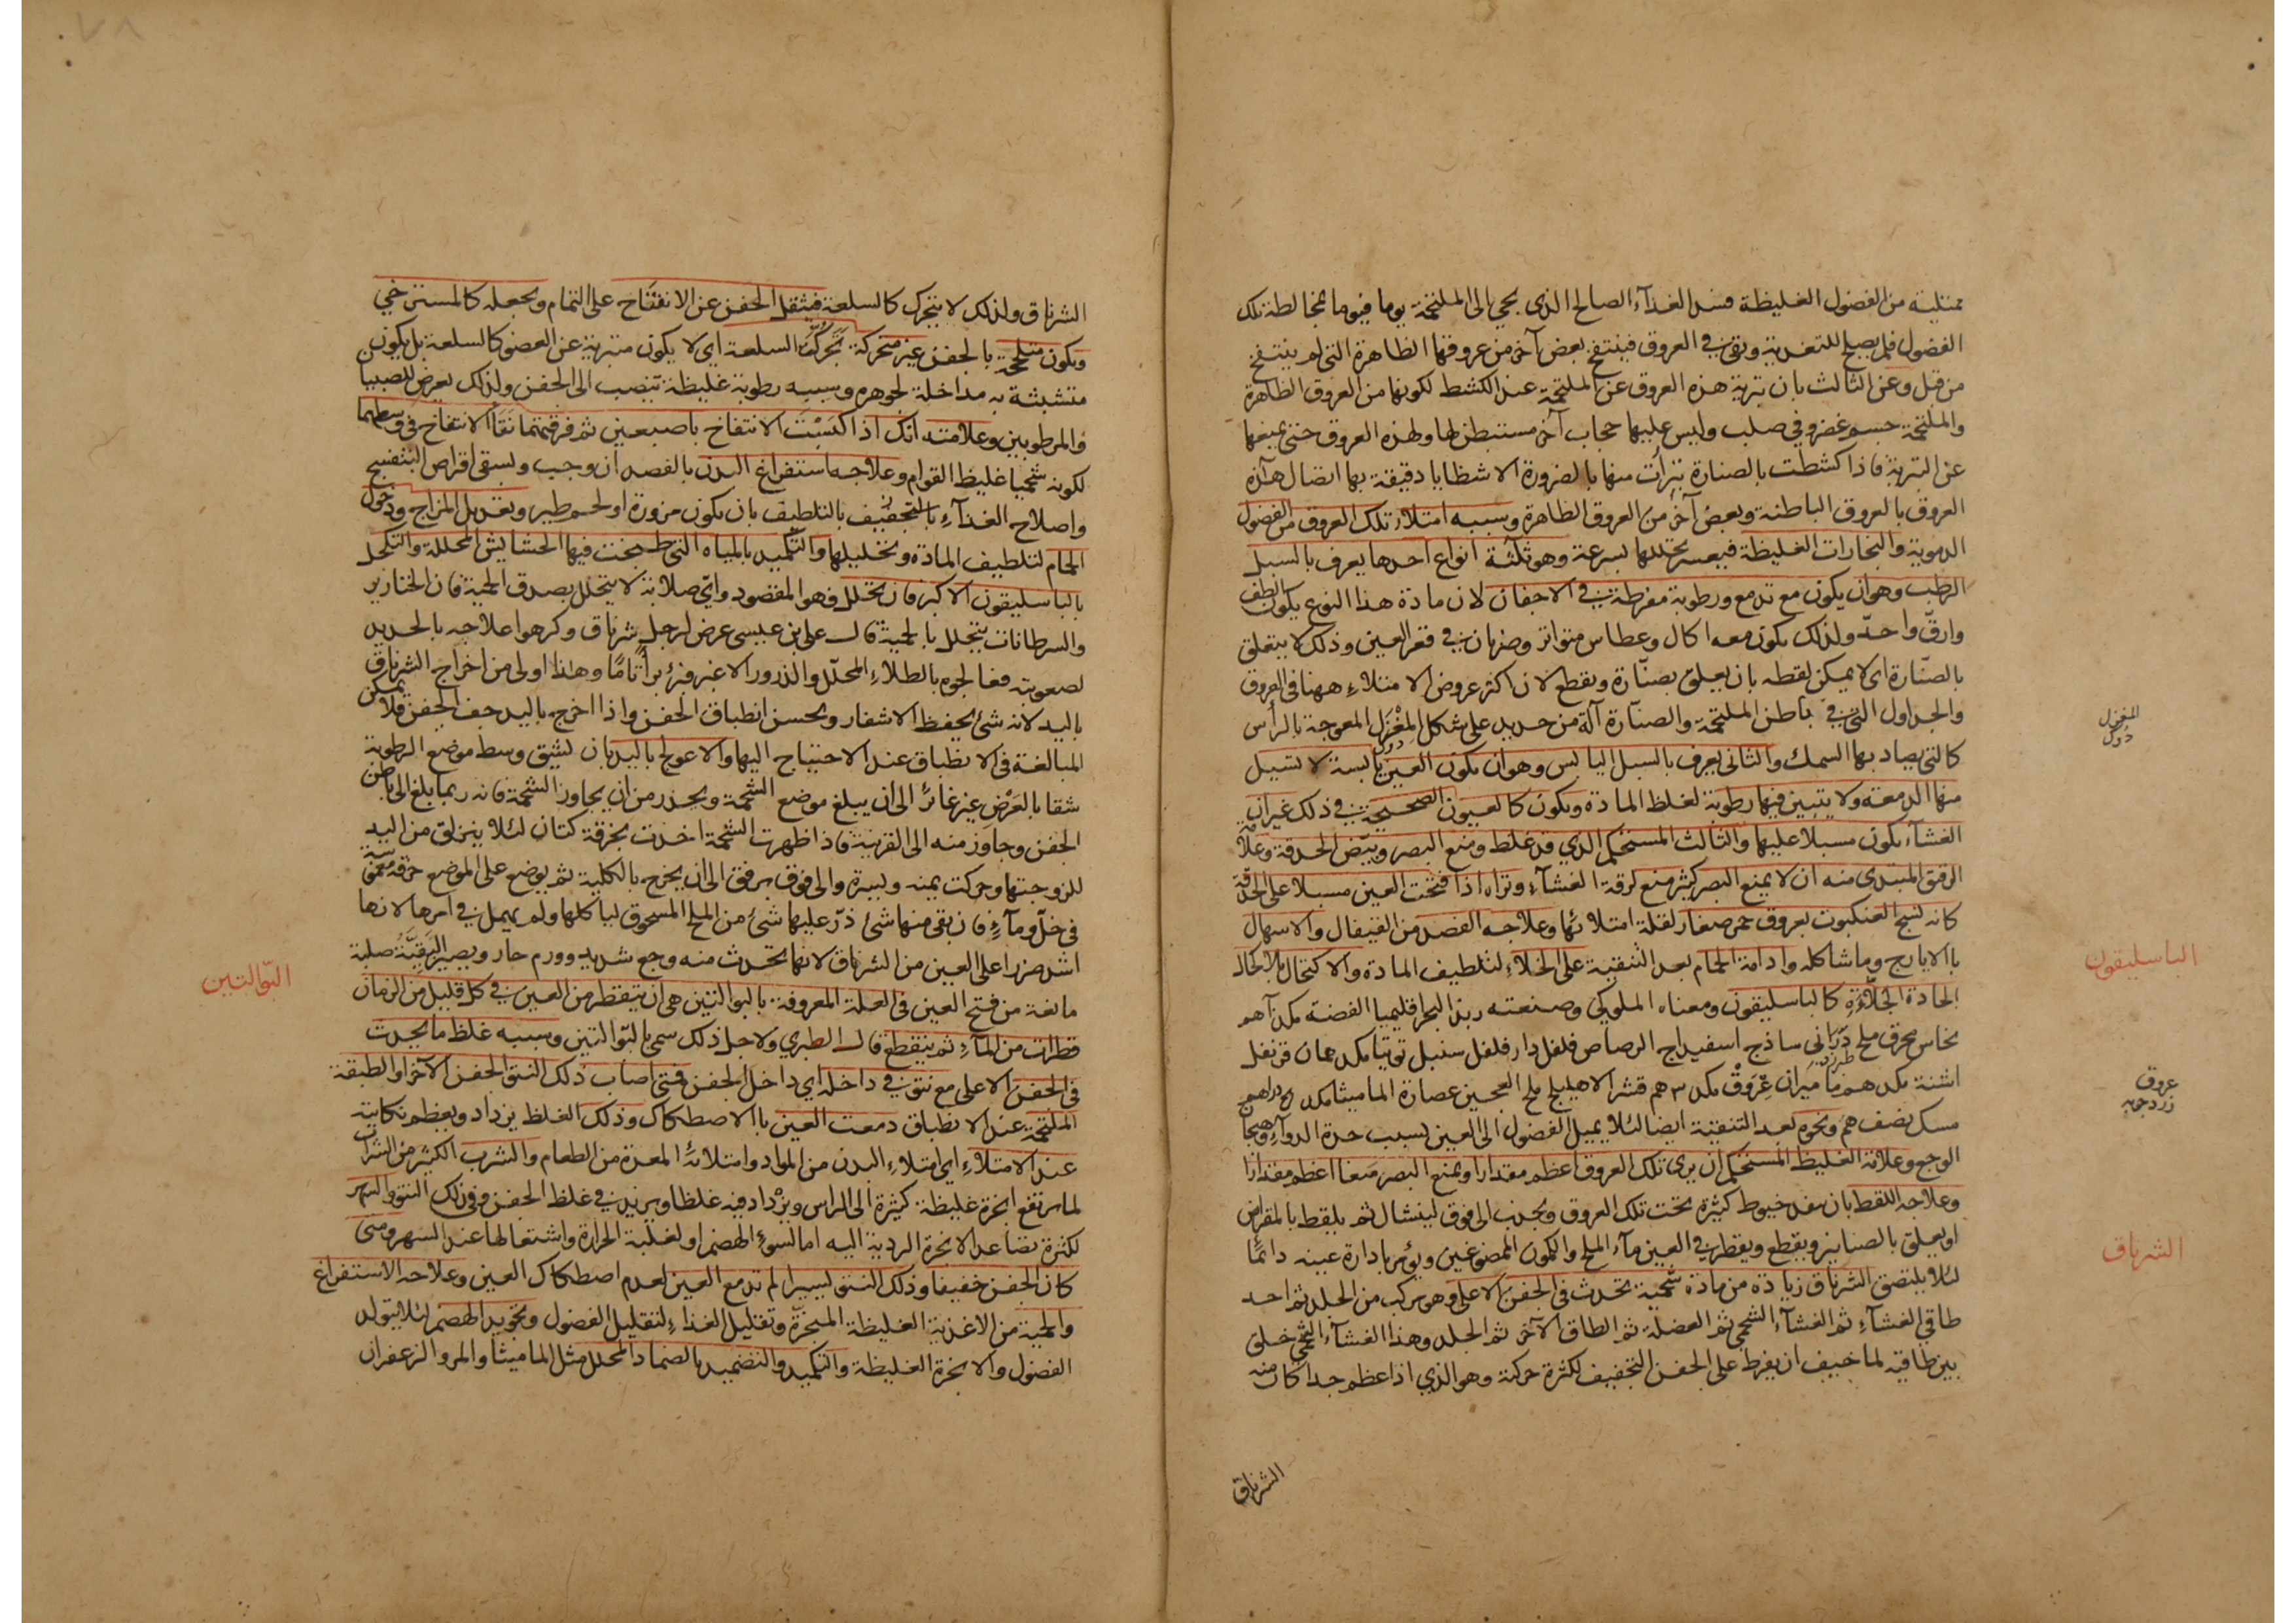 ممتلية من الفضول الغليظة فسد الغذآء الصالح الذي يجئ الى الملتحمة يوما فيوما بمخالطة تلك
الفضول فلم يصلح للتغدية وبقى في العروق فينتفخ بعض آخر من عروقها الظاهرة التى لم ينتفخ
من قبل وعن الثالث بان تبرية هذه العروق عن الملتحمة عند الكشط لكونها من العروق الظاهرة
والملتحمة جسم غضروفي صلب وليس عليها حجاب آخر مستبطن لها ولهذه العروق حتى يمنعها
عن التبرية فاذا كشطت بالصنارة تبرأت منها بالضرورة الا شظايا دقيقة بها اتصال هذه
العروق بالعروق الباطنة وبعض آخر من العروق الظاهرة وسببه امتلاء تلك العروق من الفضول
الدموية والبخارات الغليظة فيعسر تحللها بسرعة وهو ثلثة انواع احدها يعرف بالسبل
الرطب وهو ان يكون مع تدمع ورطوبة مفرطة في الاجفان لان مادة هذا النوع يكون الطف
وارق واحد ولذلك يكون معه اكال وعطاس متواتر وضربان في قعر العين وذلك لا يتعلق
بالصنارة اى لا يمكن لقطه بان يعلق بصنارة ويقطع لان اكثر عروض الامتلاء ههنا فى العروق
والجداول التى في باطن الملتحمة والصنارة آلة من حديد على شكل المغزل المعوجة بالرأس
كالتى يصاد بها السمك والثانى يعرف بالسبل اليابس وهو ان يكون العين يابسة لا تسيل
منها الدمعة ولا يتبين فيها رطوبة لغلظ المادة ويكون كالعيون الصحيحة في ذلك غير ان
الغشآء يكون مسبلا عليها والثالث المستحكم الذي قد غلظ ومنع البصر وبيض الحدقة وعلامة
الرقيق المبتدى منه ان لا يمنع البصر كثير منع لرقة الغشآء وتراه اذا فتحت العين مسبلا على الحدقة
كانه نسج العنكبوت بعروق حمر صغار لقلة امتلائها وعلاجه الفصد من القيفال والاسهال
باالايارج وما شاكله وادامة الحمام بعد التنقية على الخلاء لتلطيف المادة والاكتحال بالاكحال
الحادة الجلاءة كالباسليقون ومعناه الملوكي وصنعته زبد البحر اقليميا الفضة
نحاس محرق ملح دراني ساذج اسفيداج الرصاص فلفل دار فلفل سنبل توتيا قرنفل
اشنة ماميران عروق قشر الاهليلج ملح العجين عصارة الماميثا
مسك نصف ونحوه بعد التنقية ايضا لئلا يميل الفضول الى العين بسبب حدة الدوآء وهيجان
الوجع وعلامة الغليظ المستحكم ان يرى تلك العروق اعظم مقدارا ويمنع البصر منعا اعظم مقدارا
وعلاجه اللقط بان ينفد خيوط كثيرة تحت تلك العروق ويجذب الى فوق لينشال ثم يلقط بالمقراض
او يعلق بالصنانير ويقطع ويقطر في العين مآء الملح والكمون الممضوغين ويؤمر بادارة عينه دائما
لئلا يلتصق الشرناق زيادة من مادة شحمية تحدث فى الجفن الاعلى وهو مركب من الجلد ثم احد
طاقي الغشآء ثم الغشآء الشحمي ثم العضلة ثم الطاق الآخر ثم الجلد وهذا الغشآء الشحمي خلق
بين طاقيه لما خيف ان يفرط على الجفن التجفيف لكثرة حركته وهو الذي اذا عظم جدا كان منه
الشرناق
المغزل
دوك
الباسليقون
عروق
زردچوبه
الشرناق
الشرناق ولذلك لا يتحرك كالسلعة فيثقل الجفن عن الانفتاح على التمام ويجعله كالمسترخي
ويكون ملتحمة بالجفن غير متحركة تحرك السلعة اى لا يكون متبرية عن العضو كالسلعة بل يكون
متشبثة به مداخلة لجوهره وسببه رطوبة غليظة تنصب الى الجفن ولذلك يعرض للصبيان
والمرطوبين وعلامته انك اذا كبست الانتفاخ باصبعين ثم فرقتهما نتأ الانتفاخ فى وسطهما
لكونه شحميا غليظ القوام وعلاجه استفراغ البدن بالفصد ان وجب ويسقى اقراص البنفسج
واصلاح الغذآء بالتجفيف بالتلطيف بان يكون مزورة او لحم طير وتعديل المزاج ودخول
الحمام لتلطيف المادة وتحليلها والتكميد بالمياه التى طبخت فيها الحشايش المحللة والتكحل
بالباسليقون الاكبر فان تحلل فهو المقصود واى صلابة لا يتحلل بصدق الحمية فان الخنازير
والسرطانات يتحلل بالحمية قال على ابن عيسى عرض لرجل شرناق وكرهوا علاجه بالحديد
لصعوبته فعالجوه بالطلاء المحلل والذرور الاغبر فبرئ برأ تاما وهذا اولى من اخراج الشرناق
باليد لانه شئ يحفظ الاشفار ويحسن انطباق الجفن واذا اخرج باليد جف الجفن فلا يمكن
المبالغة فى الانطباق عند الاحتياج اليها والا عولج باليد بان يشق وسط موضع الرطوبة
شقا بالعرض غير غائر الى ان يبلغ موضع الشحمة ويحذر من ان يجاوز الشحمة فانه ربما بلغ الى باطن
الجفن وجاوز منه الى القرنية فاذا ظهرت الشحمة اخذت بخرقة كتان لئلا ينزلق من اليد
للزوجتها وحركت يمنه ويسرة والى فوق برفق الى ان يخرج بالكلية ثم يوضع على الموضع خرقة مغموسة
فى خل ومآء فان بقى منها شئ ذر عليها شئ من الملح المسحوق ليأكلها ولم يهمل في امرها لانها
اشد ضررا على العين من الشرناق لانها تحدث منه وجع شديد وورم حار ويصير البقية صلبة
مانعة من فتح العين فى العلة المعروفة بالبوالتين هى ان يتقطر من العين في كل قليل من الزمان
قطرات من المآء ثم ينقطع قال الطبري ولاجل ذلك سمي بالبوالتين وسببه غلظ ما يحدث
فى الجفن الاعلى مع نتو في داخله اي داخل الجفن فمتى اصاب ذلك النتو الجفن الآخر او الطبقة
الملتحمة عند الانطباق دمعت العين باالاصطكاك وذلك الغلظ يزداد ويعظم نكايته
عند الامتلاء اي امتلاء البدن من المواد وامتلاء المعدة من الطعام والشرب الكثير من الشراب
لما يرتفع ابخرة غليظة كثيرة الى الراس ويزداد فيه غلظا ويزيد في غلظ الجفن وفى ذلك النتو والسهر
لكثرة تصاعد الابخرة الردية اليه اما لسوء الهضم او لغلبة الحرارة واشتعالها عند السهر ومتى
كان الجفن خفيفا وذلك النتو يسيرا لم تدمع العين لعدم اصطكاك العين وعلاجه الاستفراغ
والحمية من الاغذية الغليظة المبخرة وتقليل الغذاء لتقليل الفضول وتجويد الهضم لئلا يتولد
الفضول والابخرة الغليظة والتكميد والتضميد بالضماد المحلل مثل الماميثا والمر والزعفران
البوالتين
٧٨